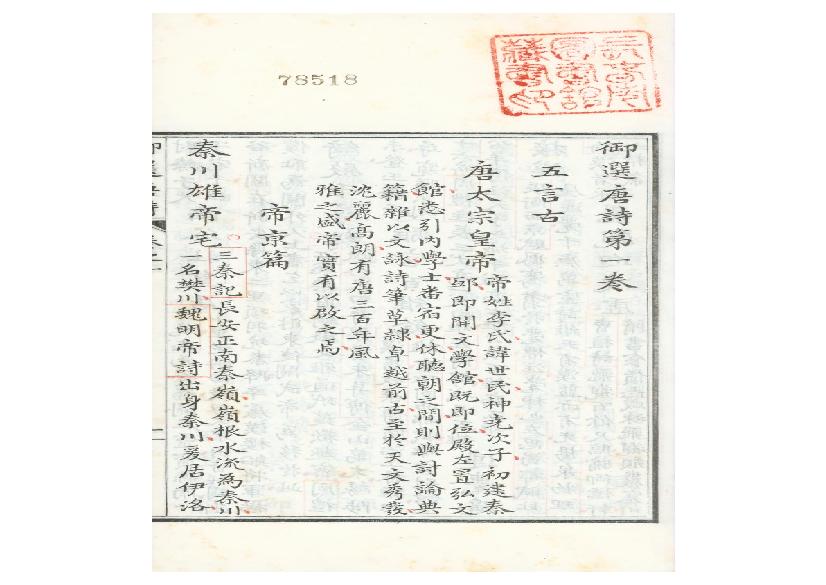 78518
御選唐詩第一卷
五言古
唐太宗皇帝
帝姓李氏諱世民神堯次子初建秦
邸即開文學館既即位殿左置弘文
館悉引內學士番宿更休聽朝之間則與討論典
籍雜以文詠詩筆草隸卓越前古至於天文秀發
沈麗高朗有唐三百年風
雅之盛帝實有以啟之焉
帝京篇
秦川雄帝宅
三秦記長安正南秦嶺嶺根水流為秦川
一名樊川魏明帝詩出身秦川爰居伊洛